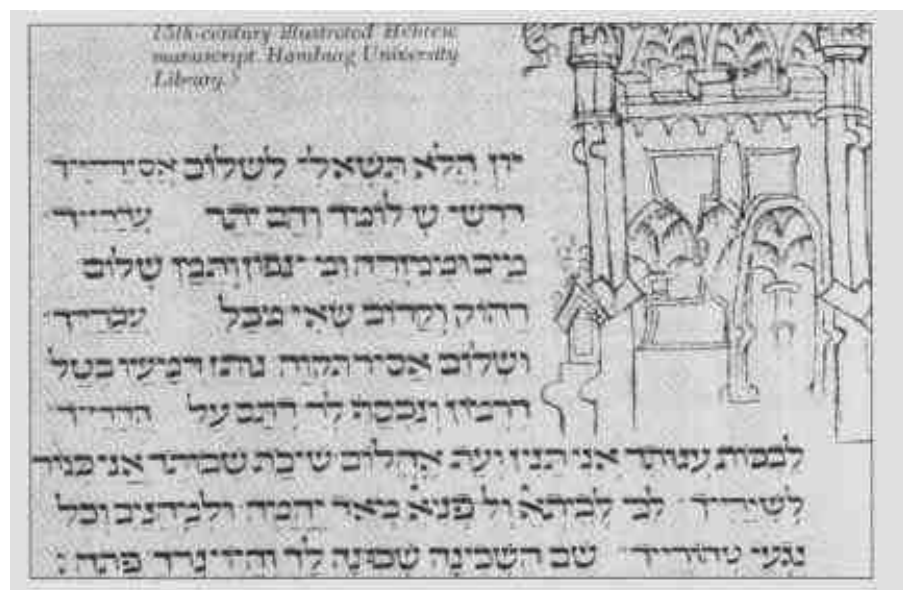 15th-century illustrated Hebrew
manuscript. Hamburg University
Library.
יון הלא תשאלי לשלום אסירייך
דרשי שלומך והם יתר עדרייך
שלום
רחוק וקרוב שאי מכל עברייך
ושלום אסיר תקוה נותן דמעיו כטל
חרמון ונכסף על הררייך
לבכות ענותך אני תנים ועת אחלום שיבת שבותך אני כנור
לשירייך לבי מאד יהמה וכל
נגעי טהורייך שם השכינה שכונה לך פתח